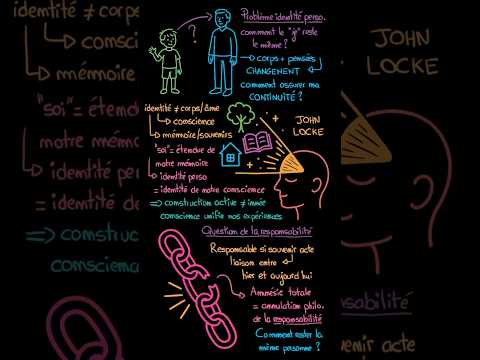 Problème identité perso.
comment le "je" reste
le même ?
?
→ corps + pensées
CHANGEMENT
comment assurer ma
CONTINUITÉ ?
identité ≠ corps/âme
↳ conscience
↳ mémoire/souvenirs
+ JOHN
LOCKE
"soi" = étendue de
notre mémoire
↳ identité perso
= identité de notre conscience
⇒ construction active ≠ innée
conscience unifie nos expériences
Question de la responsabilité
Responsable si souvenir acte
liaison entre
hier et aujourd'hui
Amnésie totale
= annulation philo.
de la responsabilité
Comment rester la
même personne ?
identité ≠ corps
↳ conscience
↳ mémoire
"soi" = étendue
notre mémoire
↳ identité perso
= identité de
⇒ construction
conscience
JOHN
LOCKE